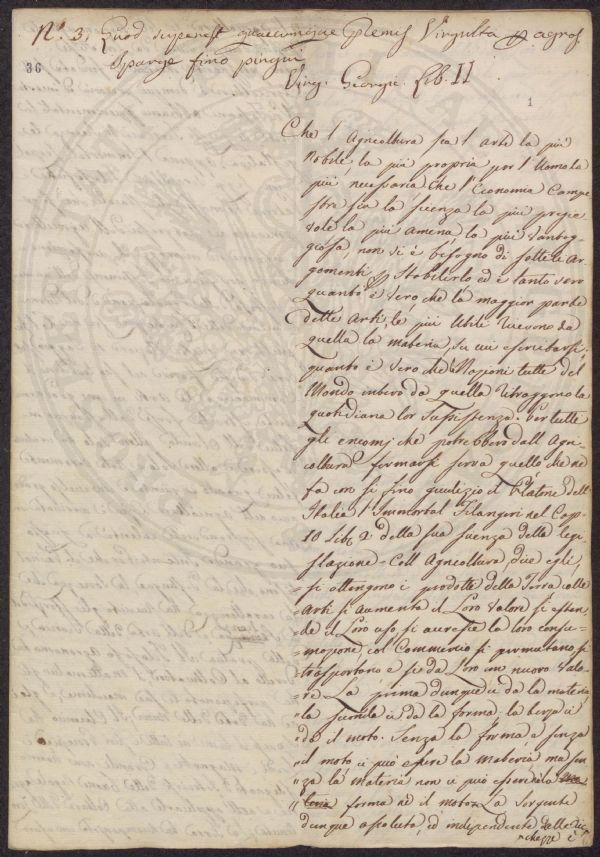 N.º 3. Quod superest quaecumque premes Virgulta per agros
Sparge fimo pingui
36
Virg. Georgic. Lib. II
1
Che l'Agricoltura sia l'arte la più
Nobile, la più propria per l'Uomo la
più necessaria che l'Economia Campe
stre sia la scienza la più pregie
vole la più amena, la più vantag-
giosa, non vi è bisogno di sottili ar
gomenti per stabilirlo ed è tanto vero
quanto è vero che la maggior parte
delle Arti, le più Utili ricevono da
quella la materia, su cui esercitarsi,
quanto è vero che Nazioni tutte del
Mondo intero da quella ritraggono la
quotidiana lor sussistenza. Per tutte
gli encomj che potrebbero dall'Agri
coltura formarsi serva quello che ne
fa con sì fino giudizio il Platone dell'
Italia l'Immortal Filangeri nel Cap.
10 Lib. 2 della sua scienza della legi
slazione = Coll'Agricoltura, dice egli,
= si ottengono i prodotti della Terra colle
= Arti si aumenta il Loro valore si esten
= de il Loro uso si accresce la loro consu
= mazione, col Commercio si permutano si
= trasportano e si da Loro un nuovo valo
= re. La prima dunque ci da la materia
= la seconda ci da la forma. la terza ci
= da il moto. Senza la forma e senza
= il moto ci può essere la materia ma sen
= za la materia non ci può essere la ma
= teria forma nè il moto = La sorgente
dunque assoluta, ed independente delle ric
"chezze è